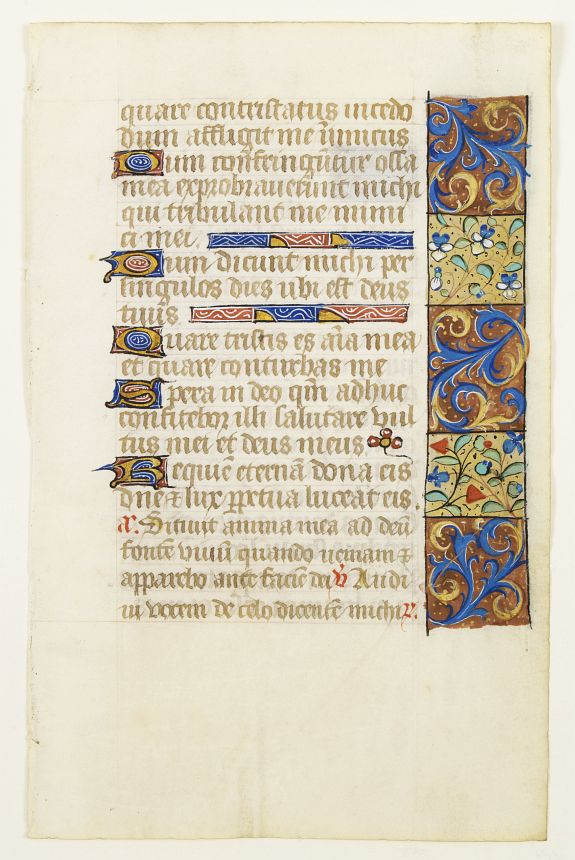 quare contristatus incedo
dum affligit me inimicus
Dum confringūtur ossa
mea exprobraverunt michi
qui tribulant me inimi
ci mei.
Dum dicunt michi per
singulos dies ubi est deus
tuus
Quare tristis es aīa mea
et quare conturbas me
Spera in deo qm̄ adhuc
confitebor illi salutare vul
tus mei et deus meus
Requiē eternā dona eis
dn̄e & lux ꝑpetua luceat eis
Sitivit anima mea ad deū
fontē vivū quando veniam &
apparebo ante faciē dei v̄ Audi
vi vocem de celo dicentē michi